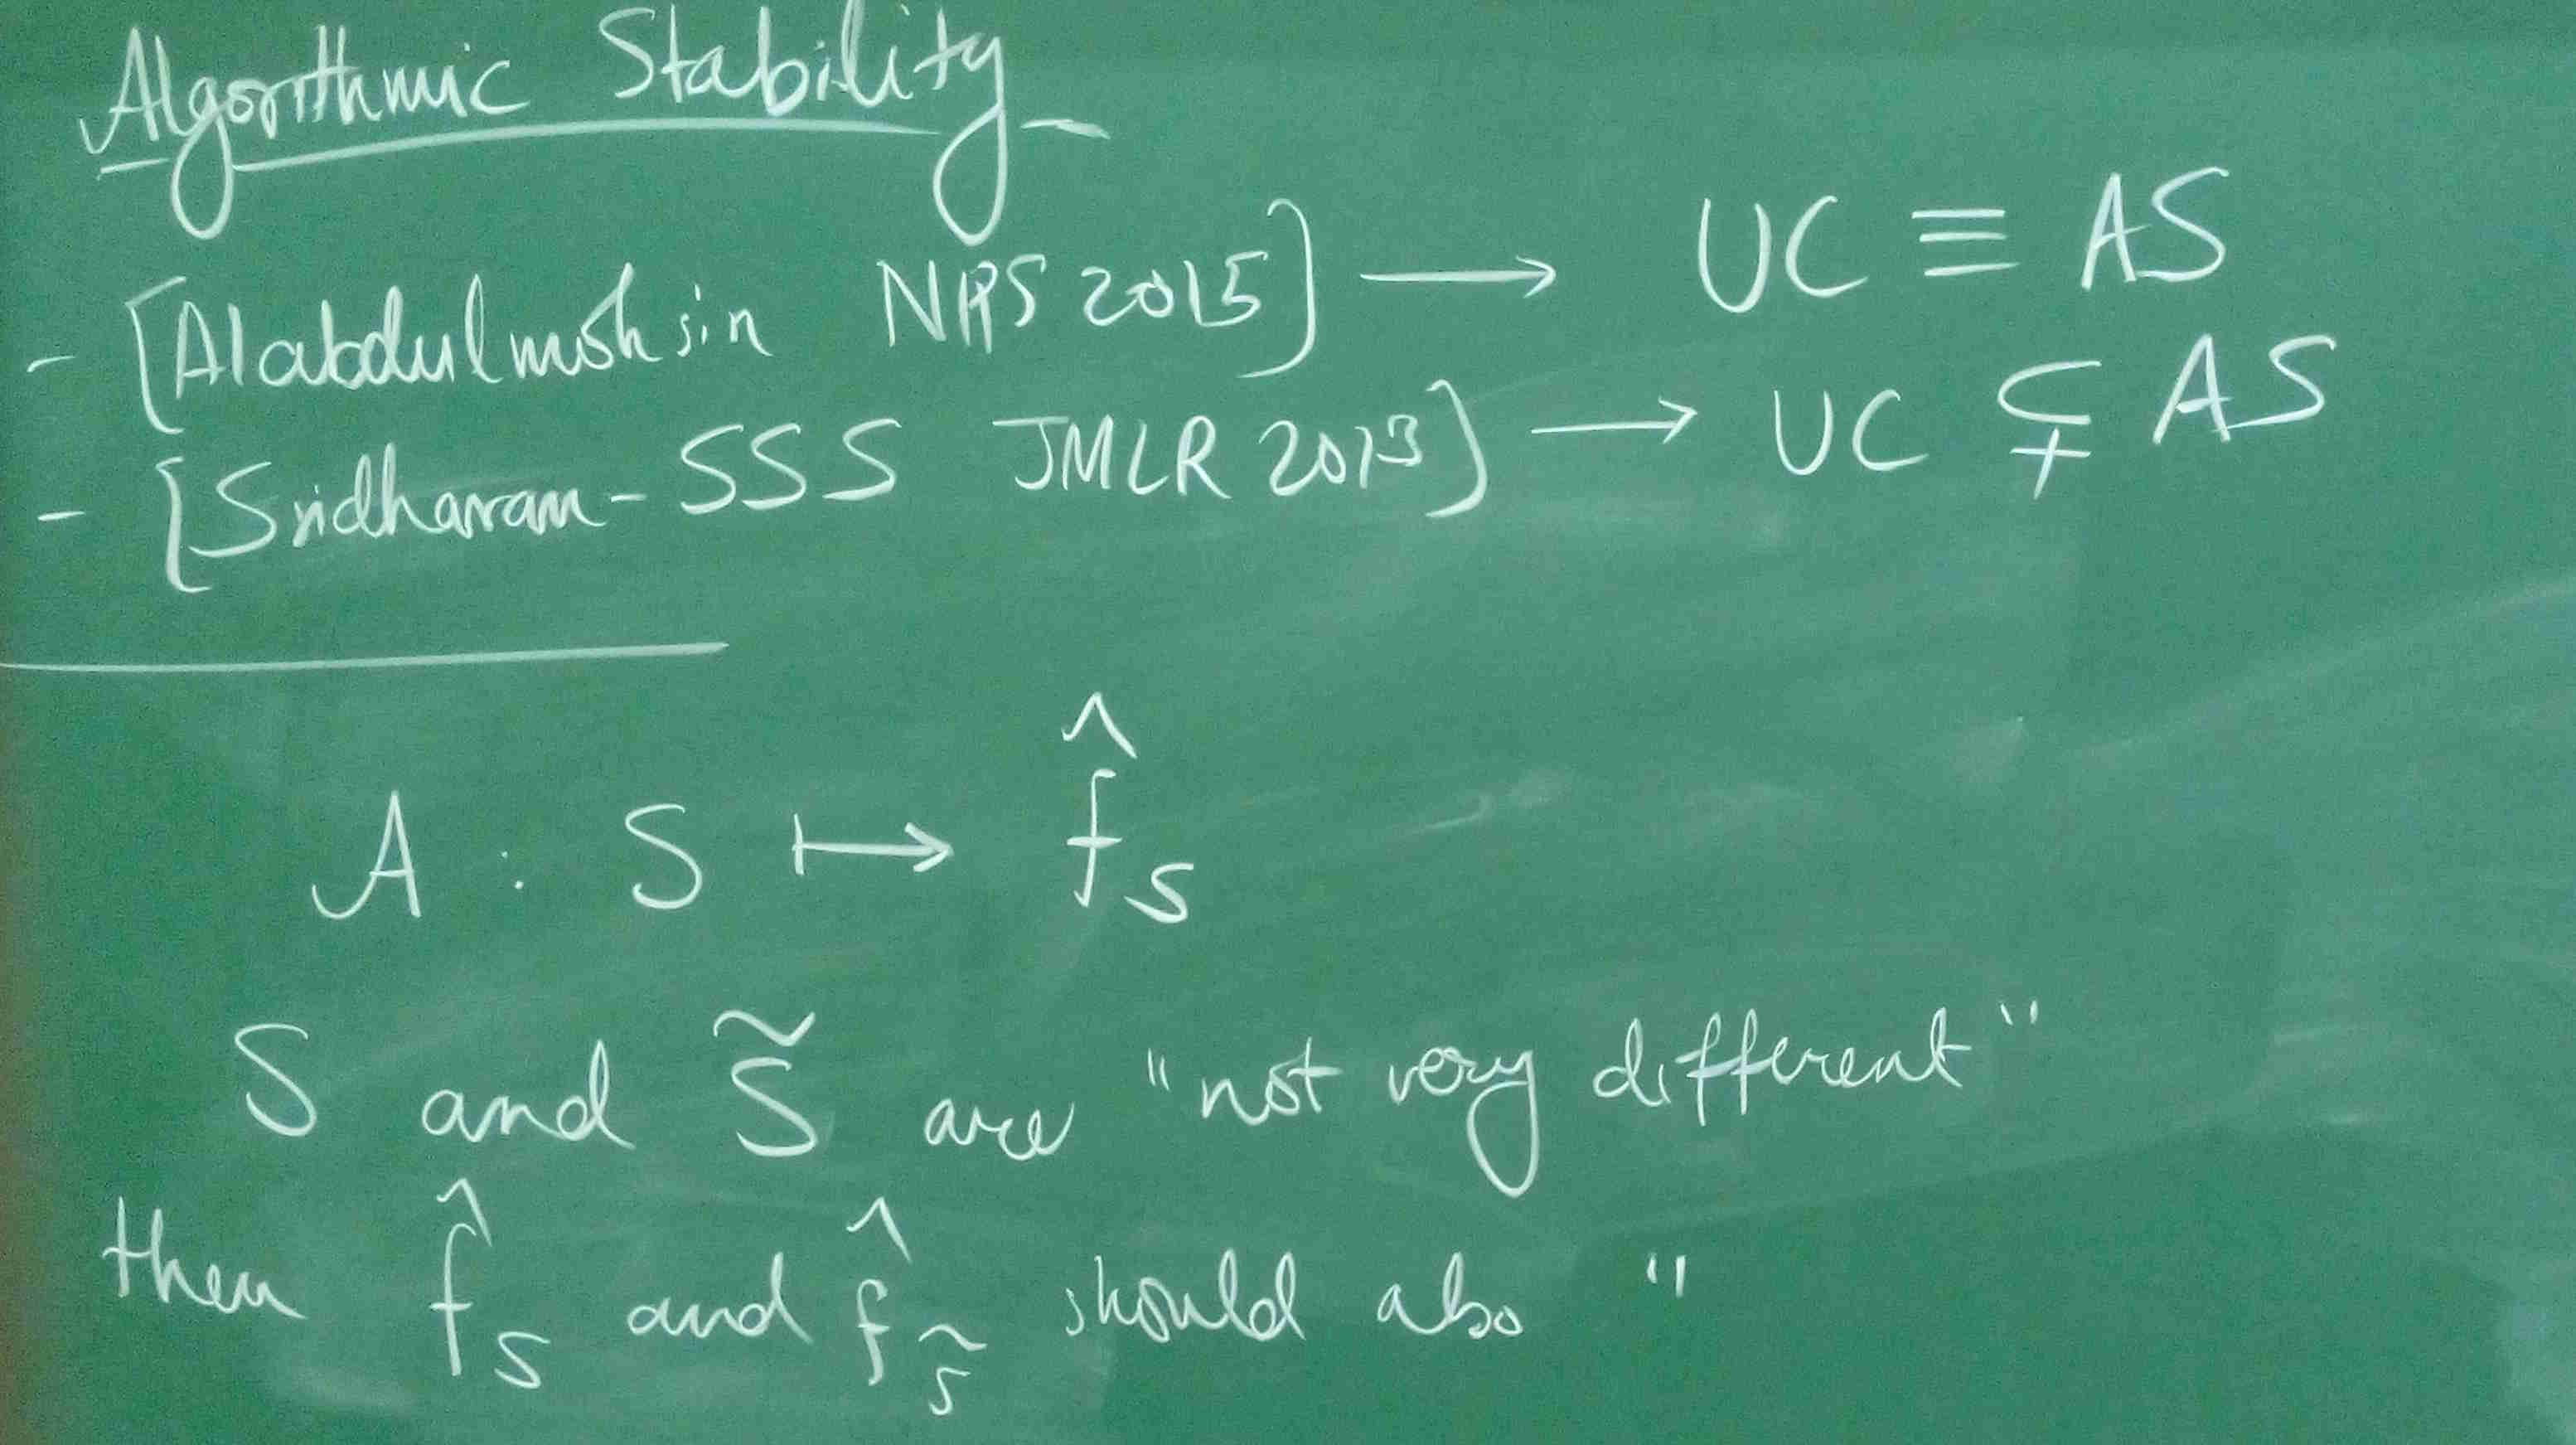 Algorithmic Stability -
- [Alabdulmohsin NIPS 2015] → UC ≡ AS
- [Sridharan-SSS JMLR 2013] → UC ⊊ AS
A : S ↦ f̂_S
S and S̃ are "not very different"
then f̂_S and f̂_S̃ should also "